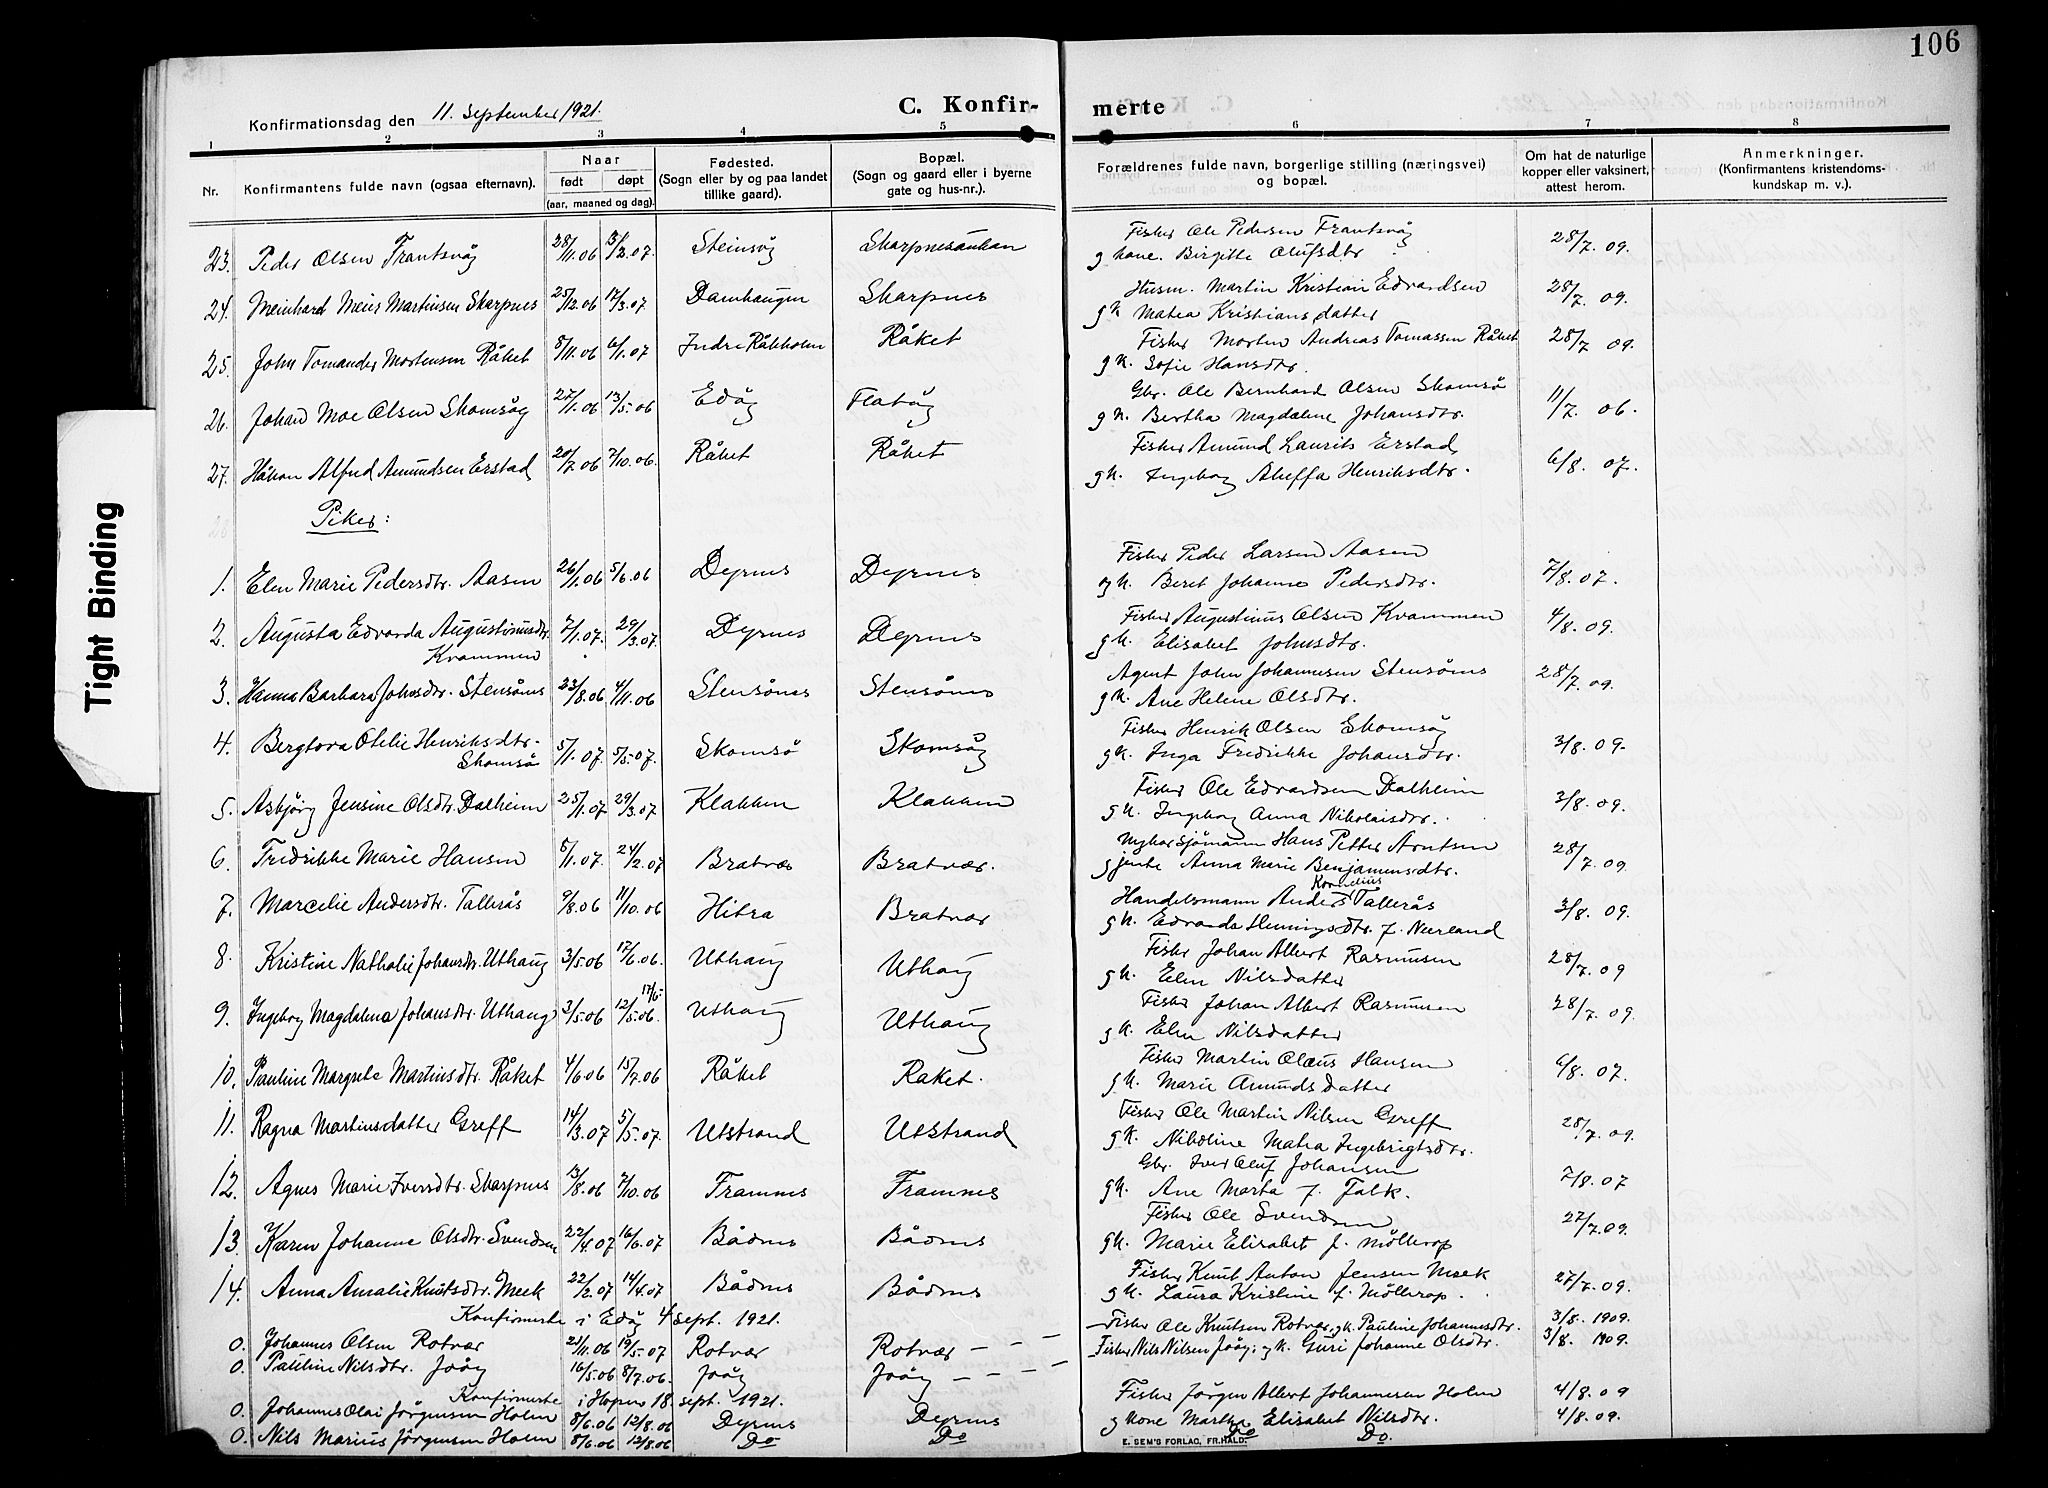 106
Tight Binding
Konfirmationsdag den 11. September 1921.
C. Konfir-
merte
1 2 3 4 5 6 7 8
Nr.
Konfirmantens fulde navn (ogsaa efternavn).
Naar
født døpt
(aar, maaned og dag).
Fødested.
(Sogn eller by og paa landet
tillike gaard).
Bopæl.
(Sogn og gaard eller i byerne
gate og hus-nr.).
Forældrenes fulde navn, borgerlige stilling (næringsvei)
og bopæl.
Om hat de naturlige
kopper eller vaksinert,
attest herom.
Anmerkninger.
(Konfirmantens kristendoms-
kundskap m. v.).
23. Peder Olsen Frantsvåg 28/11.06 3/2.07. Steinsåg Skarpnes Fisker Ole Pedersen Frantsvåg 28/7. 09.
g kone. Birgitte Olufsdtr
24. Meinhard Meier Martinsen Skarpnes 25/12.06 17/3.07 Damhaugen Skarpnes Husm. Martin Kristian Edvardsen 28/7. 09.
g k Matea Kristiansdatter
25. John Tomander Mortensen Råket 8/11.06 6/1.07 Indre Råkholm Råket Fisker Morten Andreas Tomassen Råket 28/7 09.
g k. Sofie Hansdtr.
26. Johan Moe Olsen Skomsøg 27/1.06 13/5.06 Edåg Flatåg Gbr. Ole Bernhard Olsen Skomsø 11/7. 06.
g k. Bertha Magdalene Johansdtr.
27. Håkon Alfred Amundsen Erstad 20/7 06 7/10.06. Råket Råket Fisker Amund Laurits Erstad 6/8. 07.
g k. Ingeborg Henriksdtr.
Piker:
1. Elen Marie Pedersdtr. Aasen 26/1.06 5/6.06 Dyrnes Dyrnes Fisker Peder Larsen Aasen 7/8. 07.
og k. Beret Johanne Pedersdtr.
2. Augusta Edvarda Augustinusdtr. 7/1.07. 29/3.07. Dyrnes Dyrnes Fisker Augustinus Olsen Kvammen 4/8. 09.
Kvammen g k. Elisabet Johnsdtr.
3. Hanna Barbara Johnsdtr. Stensønes 23/8.06 4/11.06 Stensønes Stensønes Agent John Johannesen Stensønes 28/7. 09.
g k. Ane Helene Olsdtr.
4. Bergtora Otelie Henriksdtr. 5/1.07. 5/5.07. Skomsø Skomsøg Fisker Henrik Olsen Skomsøg 3/8. 09.
Skomsø g k. Inga Fredrikke Johansdtr.
5. Asbjørg Jensine Olsdtr. Dalheim 25/1.07 29/3.07 Klakken Klakken Fisker Ole Edvardsen Dalheim 3/8. 09.
g k. Ingeborg Anna Nikolaisdtr.
6. Fredrikke Marie Hansen 5/1.07. 24/2.07 Bratvær Bratvær. Sjömann Hans Petter Arntsen 28/7. 09.
g jente Anna Marie Benjaminsdtr.
Kornelius
7. Marcelie Andersdtr. Tallerås 9/8.06 11/10.06 Hitra Bratvær Handelsmann Anders Tallerås 3/8. 09.
g k. Edvarda Henningsdtr f. Neerland
8. Kristine Nathalie Johansdtr. Uthaug 3/5.06 17/6.06. Uthaug Uthaug Fisker Johan Albert Rasmusen 28/7. 09
g k. Elen Nilsdatter
9. Ingeborg Magdalena Johansdtr. Uthaug 3/5.06 12/5.06. 17/6 Uthaug Uthaug Fisker Johan Albert Rasmusen 28/7. 09.
g k. Elen Nilsdatter
10. Pauline Margrete Martinsdtr. Råket 4/6.06 15/7.06 Råket Raket. Fisker Martin Olaus Hansen 6/8. 07.
g k. Marie Amundsdatter
11. Ragna Martinsdatter Greff 14/3.07 5/5.07. Utstrand Utstrand Fisker Ole Martin Nilsen Greff 28/7. 09.
g k. Nikoline Matea Ingebrigtsdtr.
12. Agnes Marie Iversdtr. Skarpnes 13/8.06 7/10.06 Framnes Framnes Gbr. Iver Oluf Johansen 7/8. 07
g k. Ane Marta f. Falk.
13. Karen Johanne Olsdtr. Svendsen 22/4.07 16/6.07 Bådnes Bådnes Fisker Ole Svendsen 27/7.09.
g k. Marie Elisabet f. Møllerop
14. Anna Amalie Knutsdtr. Meek 22/2.07 14/4.07 Bådnes Bådnes Fisker Knut Anton Jensen Meek 27/7. 09.
g k. Laura Kristine f. Møllerop.
Konfirmerte i Edåg 4 sept. 1921.
0. Johannes Olsen Rotvær 21/11.06 19/5.07 Rotvær Rotvær – – Fisker Ole Knutsen Rotvær, g k. Pauline Johannesdtr. 3/8. 1909.
0. Pauline Nilsdtr. Jøåg 16/5.06 8/7.06. Jøåg Jøåg – – Fisker Nils Nilsen Jøåg, og k. Guri Johanne Olsdtr. 3/8. 1909.
Konfirmerte i Hopen 18. sept. 1921.
0. Johannes Olai Jørgensen Holm 8/6.06 12/8.06 Dyrnes Dyrnes Fisker Jørgen Albert Johannesen Holm 4/8. 09
g kone Martha Elisabet Nilsdtr. 4/8. 09.
0. Nils Marius Jørgensen Holm 8/6.06 12/8.06 Do Do Do Do.
E. SEM'S FORLAG, FR.HALD.